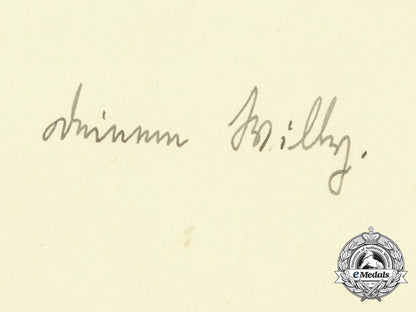 deinem Willy.
eMedals